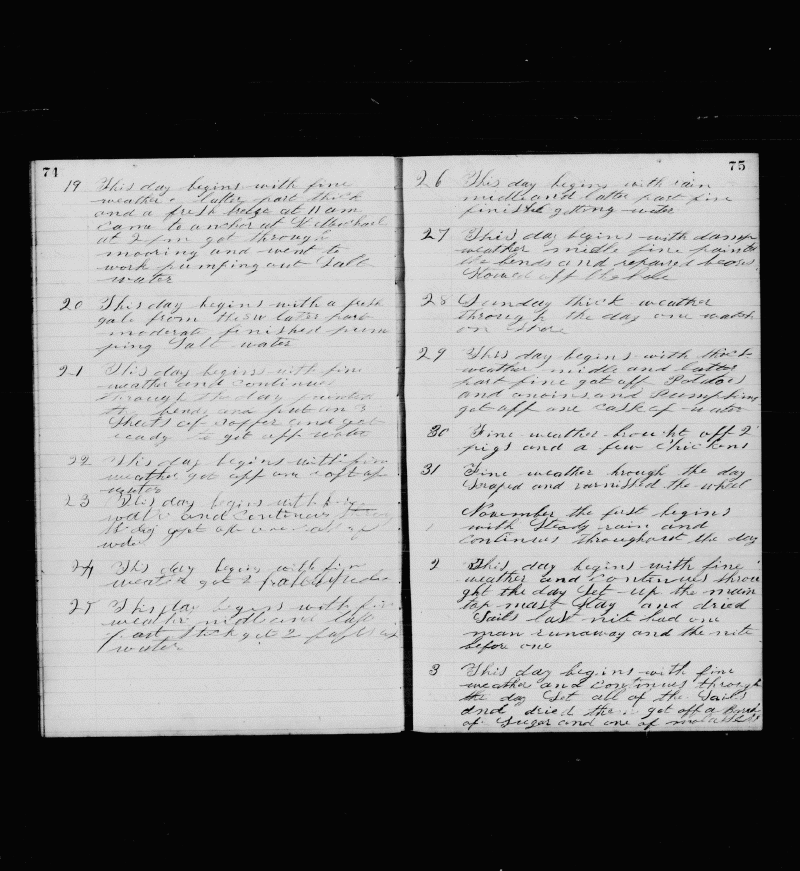 74
19 This day begins with fine
weather latter part thick
and a fresh breze at 11 am
came to anchor at St Michael
at 2 pm got through
mooring and went to
work pumping out Salt
water
20 This day begins with a fresh
gale from the SW later part
moderate finished pum
ping Salt water
21 This day begins with fine
weather and continues
through the day painted
the bends and put on 3
Sheets of copper and got
ready to get off water
22 This day begins with fine
weather got off one raft of
water
23 This day begins with
and continues
day got off one
24 This day begins with fine
got 2
25 This day begins with fine
weather midle and latter
part thick got 2 rafts of
water
75
26 This day begins with rain
midle and latter part fine
finished getting water
27 This day begins with damp
weather midle fine painted
the bends and repaired
off
28 Sunday thick weather
through the day one watch
on shore
29 This day begins with thick
weather midle and latter
part fine got off Potatoes
and onions and Pumpkins
got off one cask of water
30 Fine weather brought off 2
pigs and a few chickens
31 Fine weather through the day
Scraped and varnished the wheel
November the first begins
with Steady rain and
continues throughout the day
2 This day begins with fine
weather and continues throu
ght the day Set up the main
top mast Stay and dried
Sails last nite had one
man runaway and the nite
before one
3 This day begins with fine
weather and continues through
the day Set all of the Sails
and dried the got off a
of Sugar and one of molasses